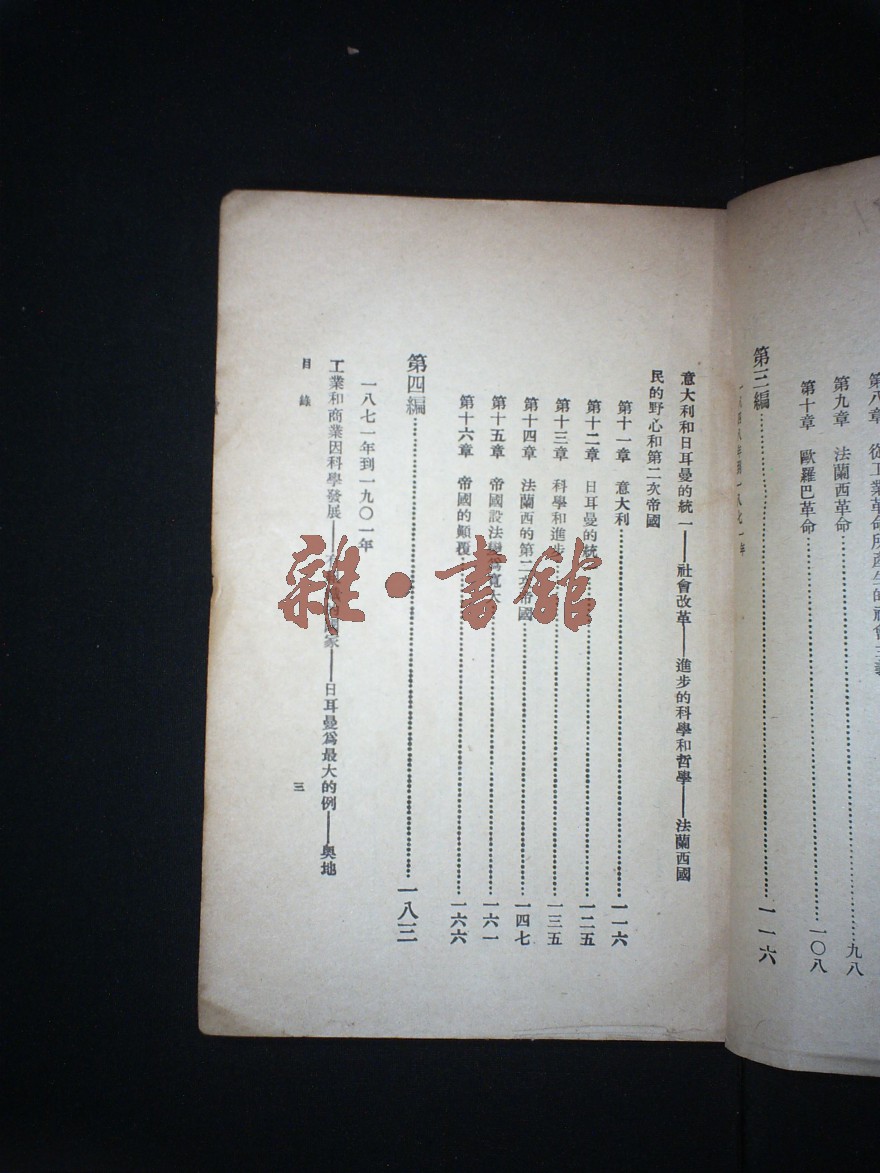 第八章 從工業革命所產生的社會主義
第九章 法蘭西革命……九八
第十章 歐羅巴革命……一〇八
第三編……一一六
一八四八年到一八七一年
意大利和日耳曼的統一——社會改革——進步的科學和哲學——法蘭西國
民的野心和第二次帝國
第十一章 意大利……一一六
第十二章 日耳曼的統一……一二五
第十三章 科學和進步……一三五
第十四章 法蘭西的第二次帝國……一四七
第十五章 帝國設法變爲寬大……一六一
第十六章 帝國的顛覆……一六六
第四編……一八三
一八七一年到一九〇一年
工業和商業因科學發展——國家——日耳曼爲最大的例——奧地
目錄
三
雜·書館